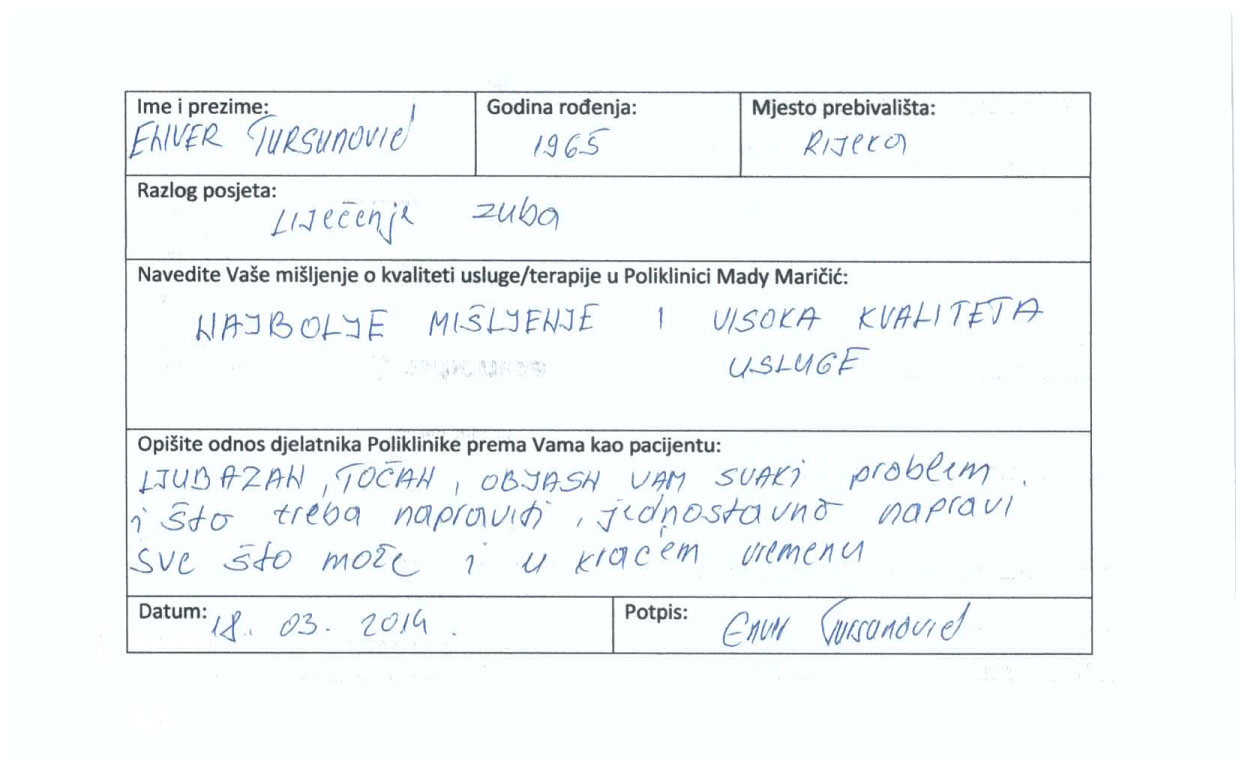 Ime i prezime: Godina rođenja: Mjesto prebivališta:
ENVER TURSUNOVIĆ 1965 RIJEKA
Razlog posjeta:
LIJEČENJE zuba
Navedite Vaše mišljenje o kvaliteti usluge/terapije u Poliklinici Mady Maričić:
NAJBOLJE MIŠLJENJE I VISOKA KVALITETA
USLUGE
Opišite odnos djelatnika Poliklinike prema Vama kao pacijentu:
LJUBAZAN, TOČAN, OBJASN VAM SVAKI problem.
i što treba napraviti, jednostavno napravi
sve što može i u kraćem vremenu
Datum: 18. 03. 2014. Potpis: Enver Tursunović